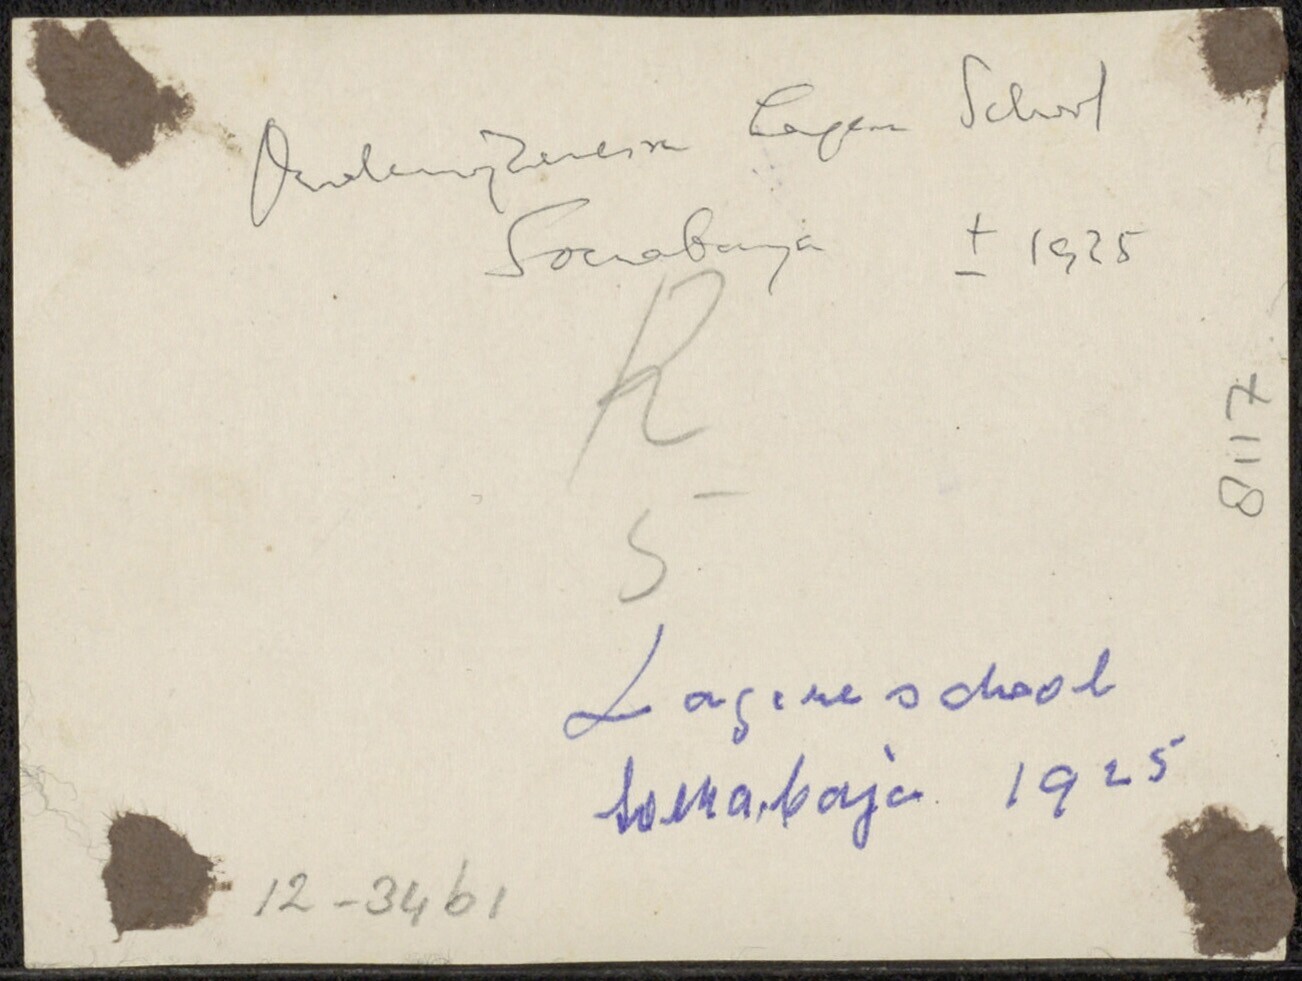 Onderwijzeressen Lagere School
Soerabaya ± 1925
R
5
8117
Lagere school
Soerabaja 1925
12-3461